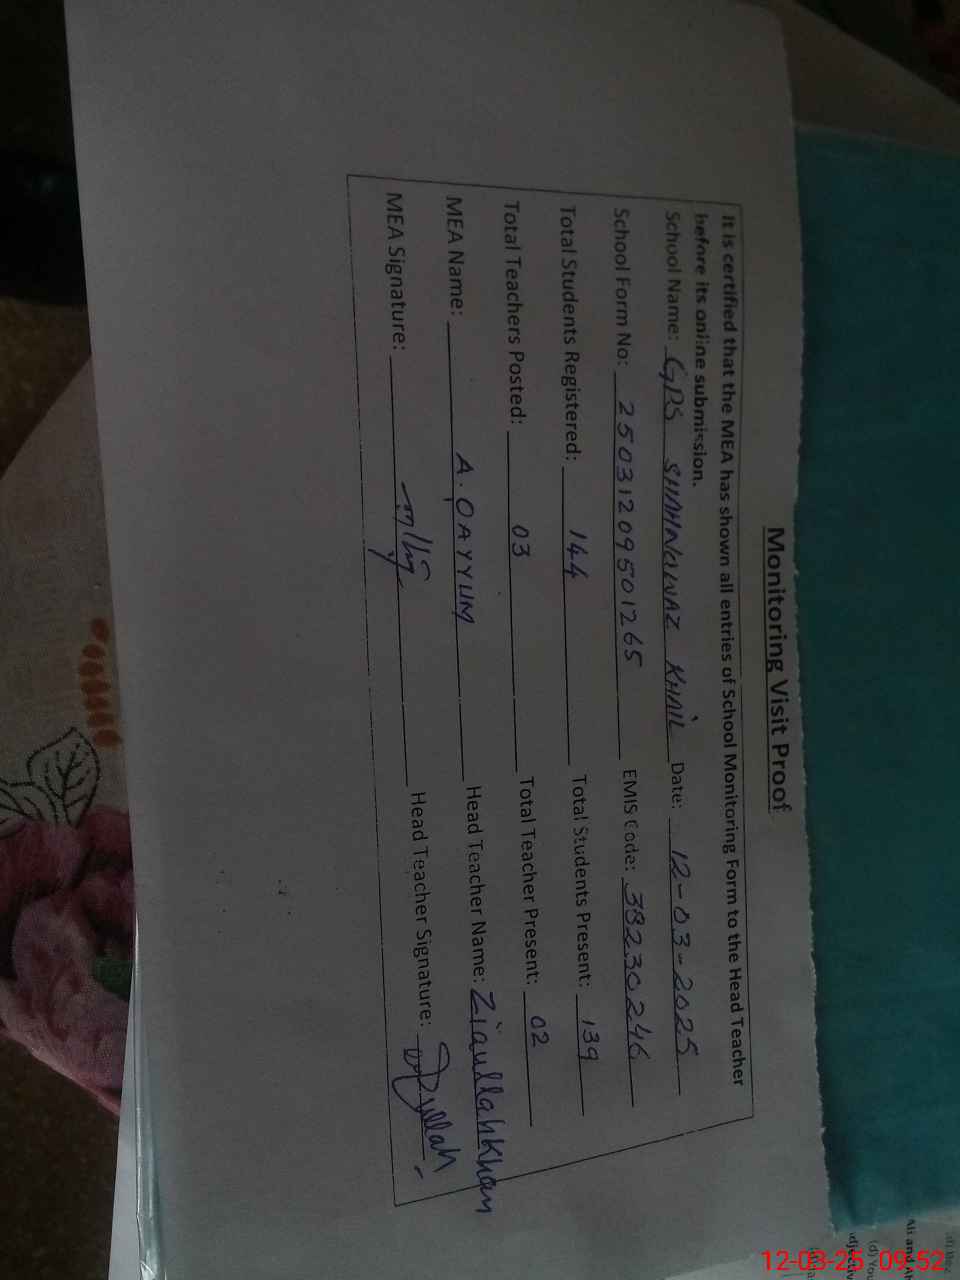 Monitoring Visit Proof
It is certified that the MEA has shown all entries of School Monitoring Form to the Head Teacher
before its online submission.
School Name: GPS SHAHNAWAZ KHAIL Date: 12-03-2025
School Form No: 25031209501265 EMIS Code: 38230246
Total Students Registered: 144 Total Students Present: 139
Total Teachers Posted: 03 Total Teacher Present: 02
MEA Name: A. QAYYUM Head Teacher Name: Ziaullah Khan
MEA Signature: Head Teacher Signature:
12-03-25 09:52